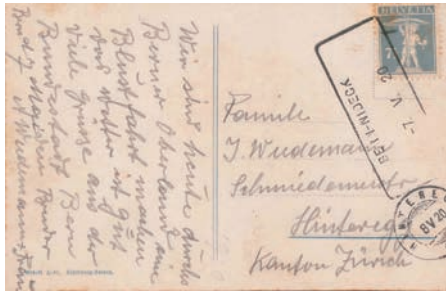 Wir sind heute durchs
Berner Oberland eine
Blustfahrt machen
das Wetter ist gut
viele Grüsse aus der
Bundesstadt Bern
Bruder
HELVETIA
7
BERN-NYDECK
-7. V. 20
Familie
J. Wiedemann
Schmiedemeister
Hinteregg
Kanton Zürich
HINTEREGG
8 V 20